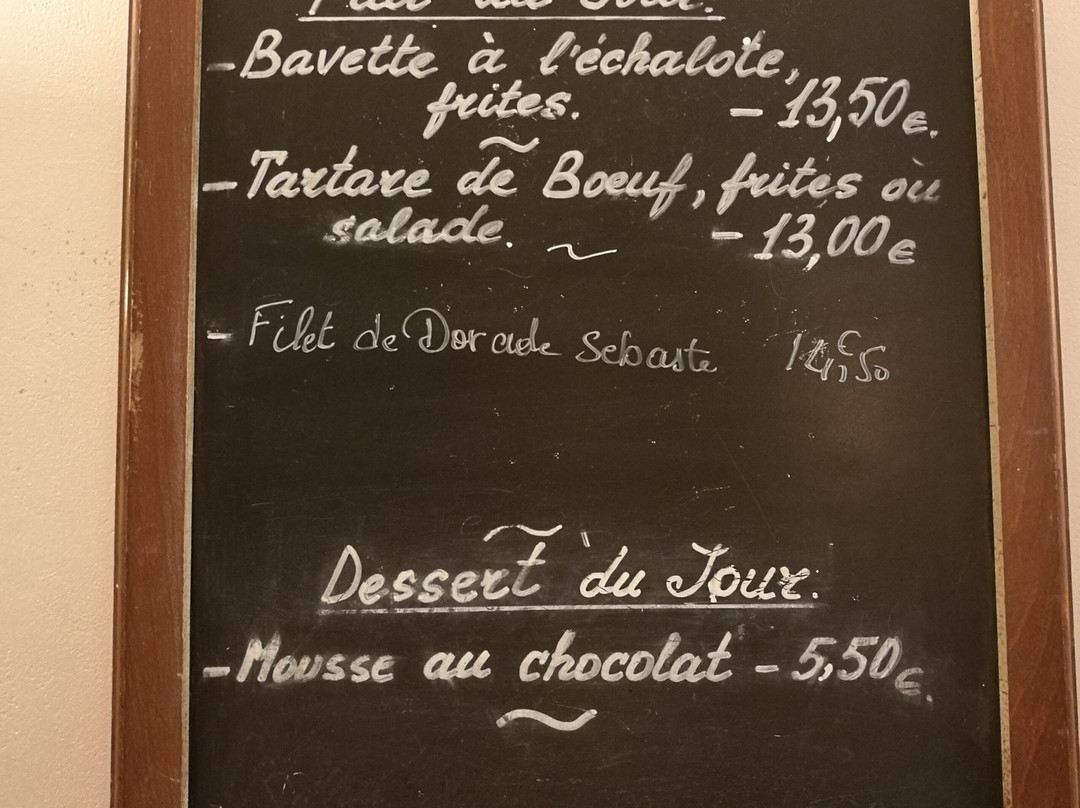 Plat du Jour.
- Bavette à l'échalote,
frites. - 13,50€.
- Tartare de Boeuf, frites ou
salade. - 13,00€
- Filet de Dorade Sebaste 14,50
Dessert du Jour.
- Mousse au chocolat - 5,50€.